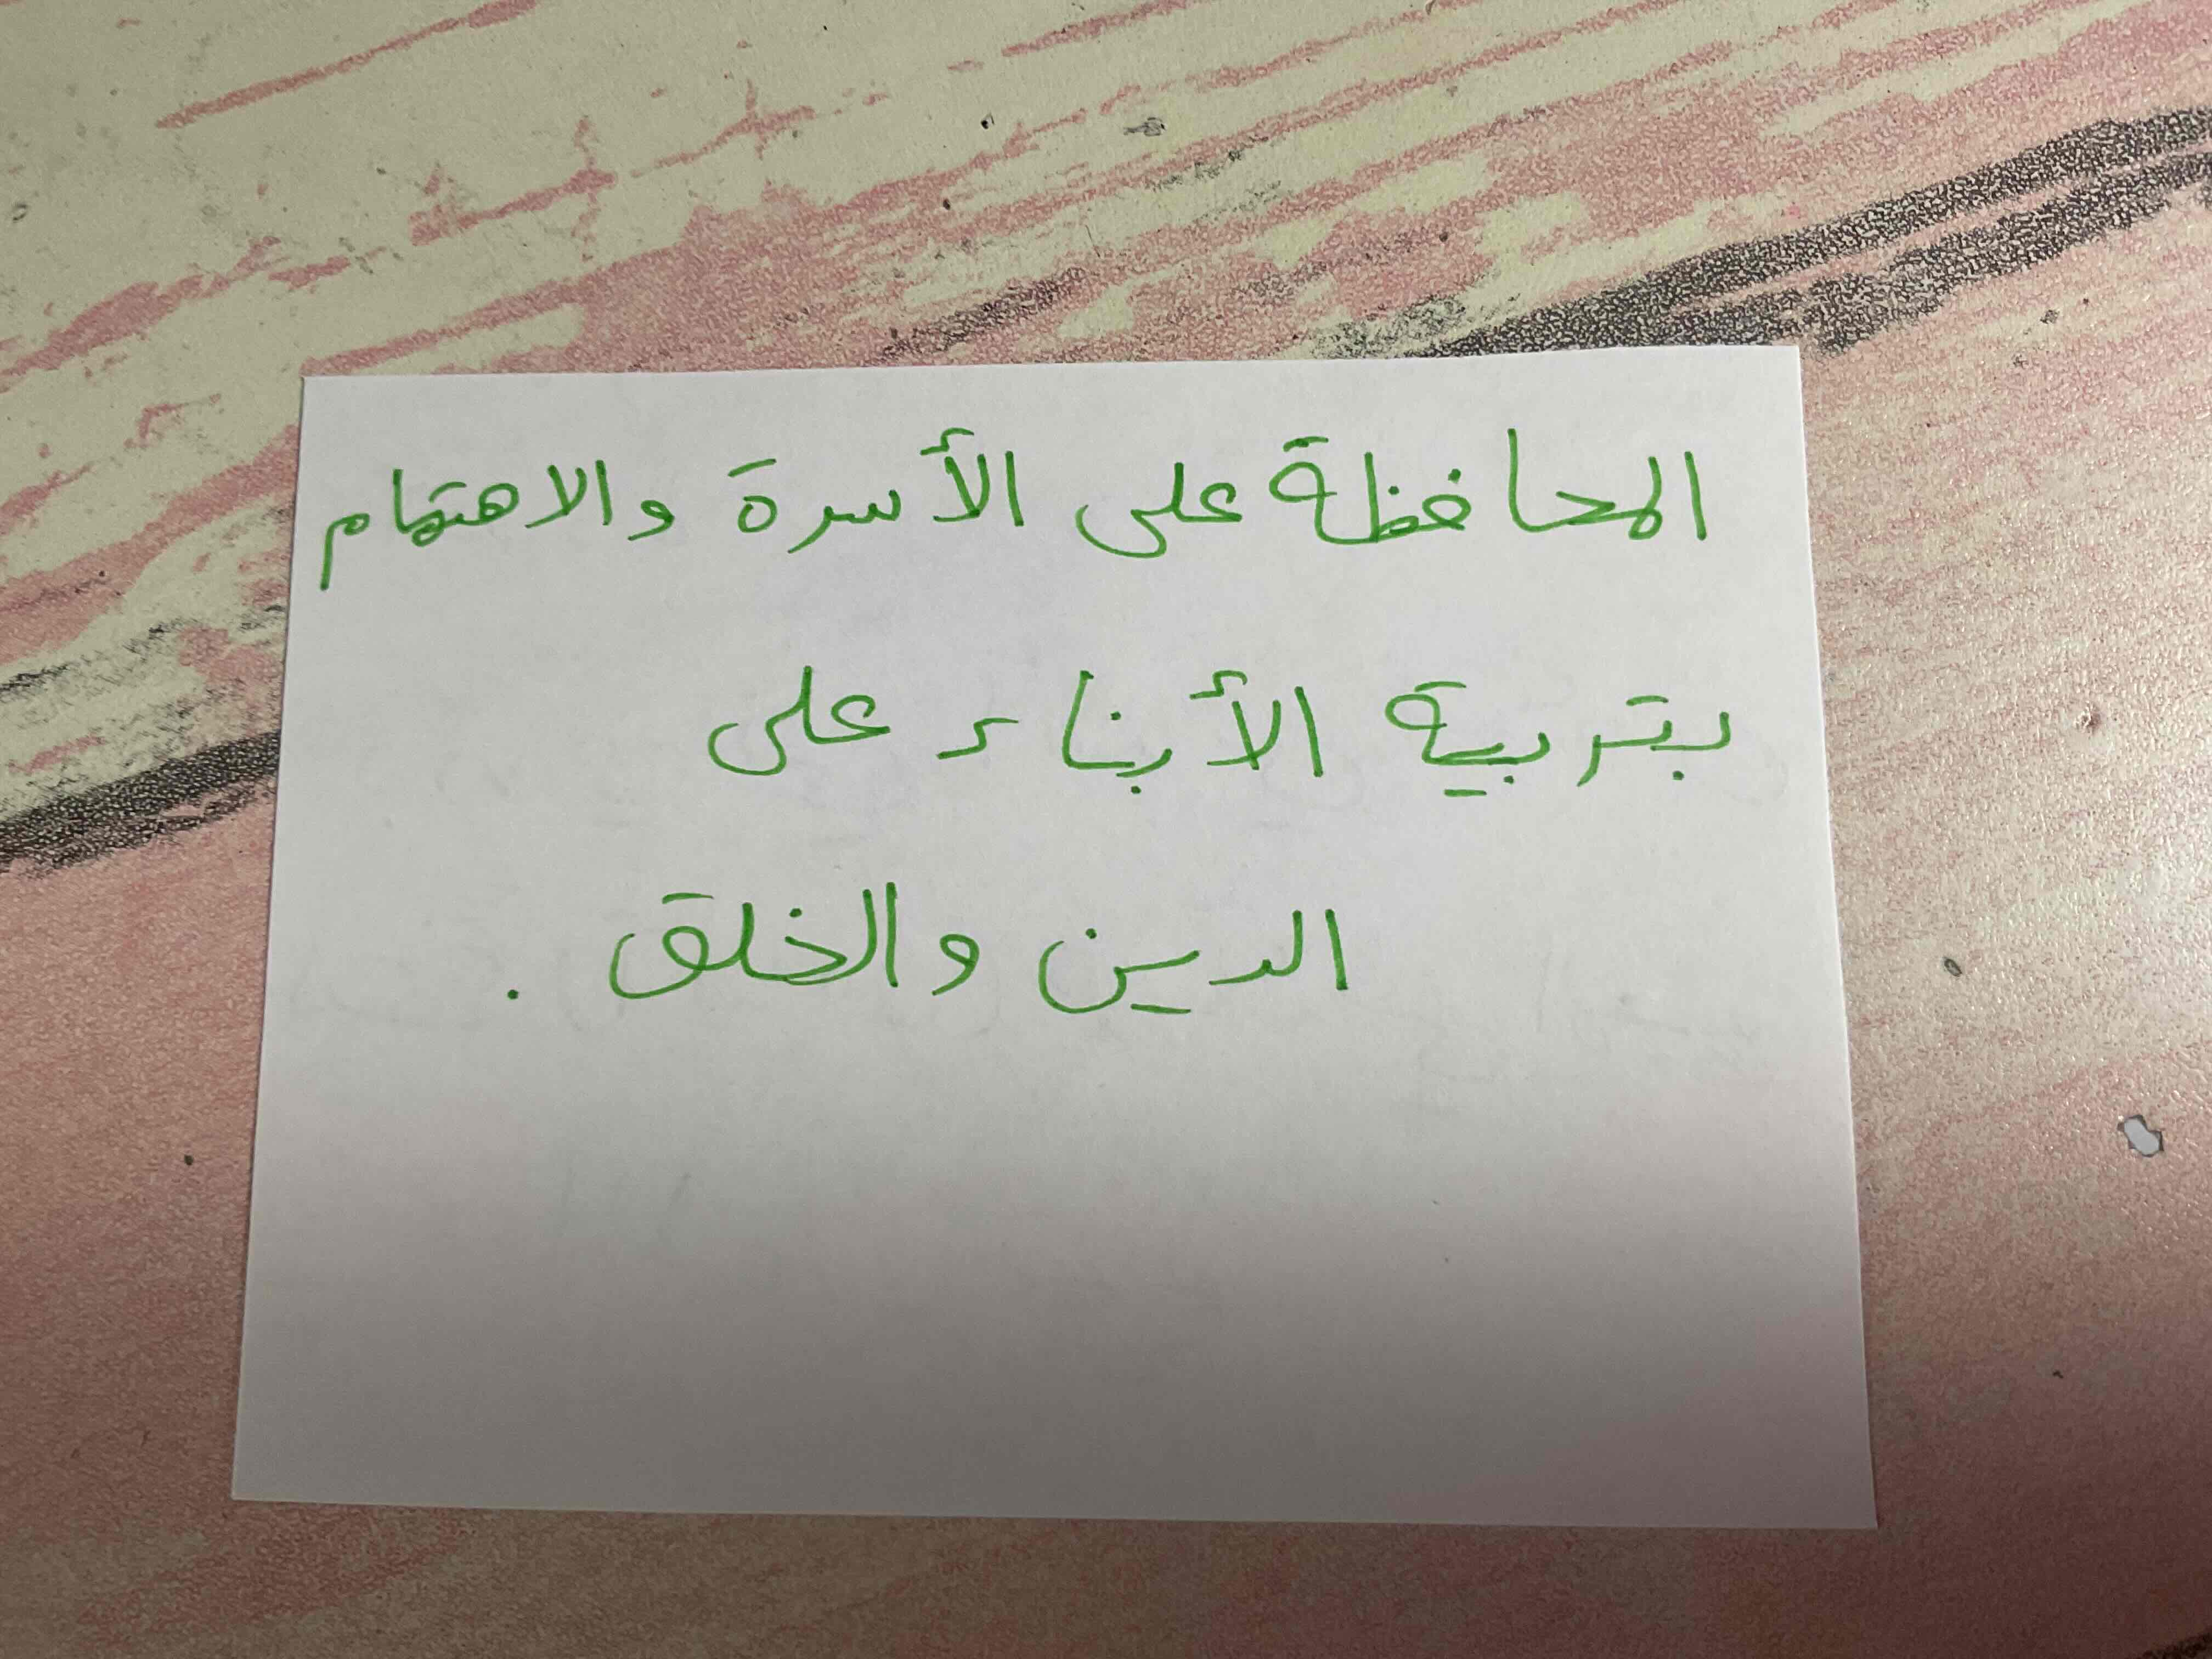 المحافظة على الأسرة والاهتمام
بتربية الأبناء على
الدين والخلق .